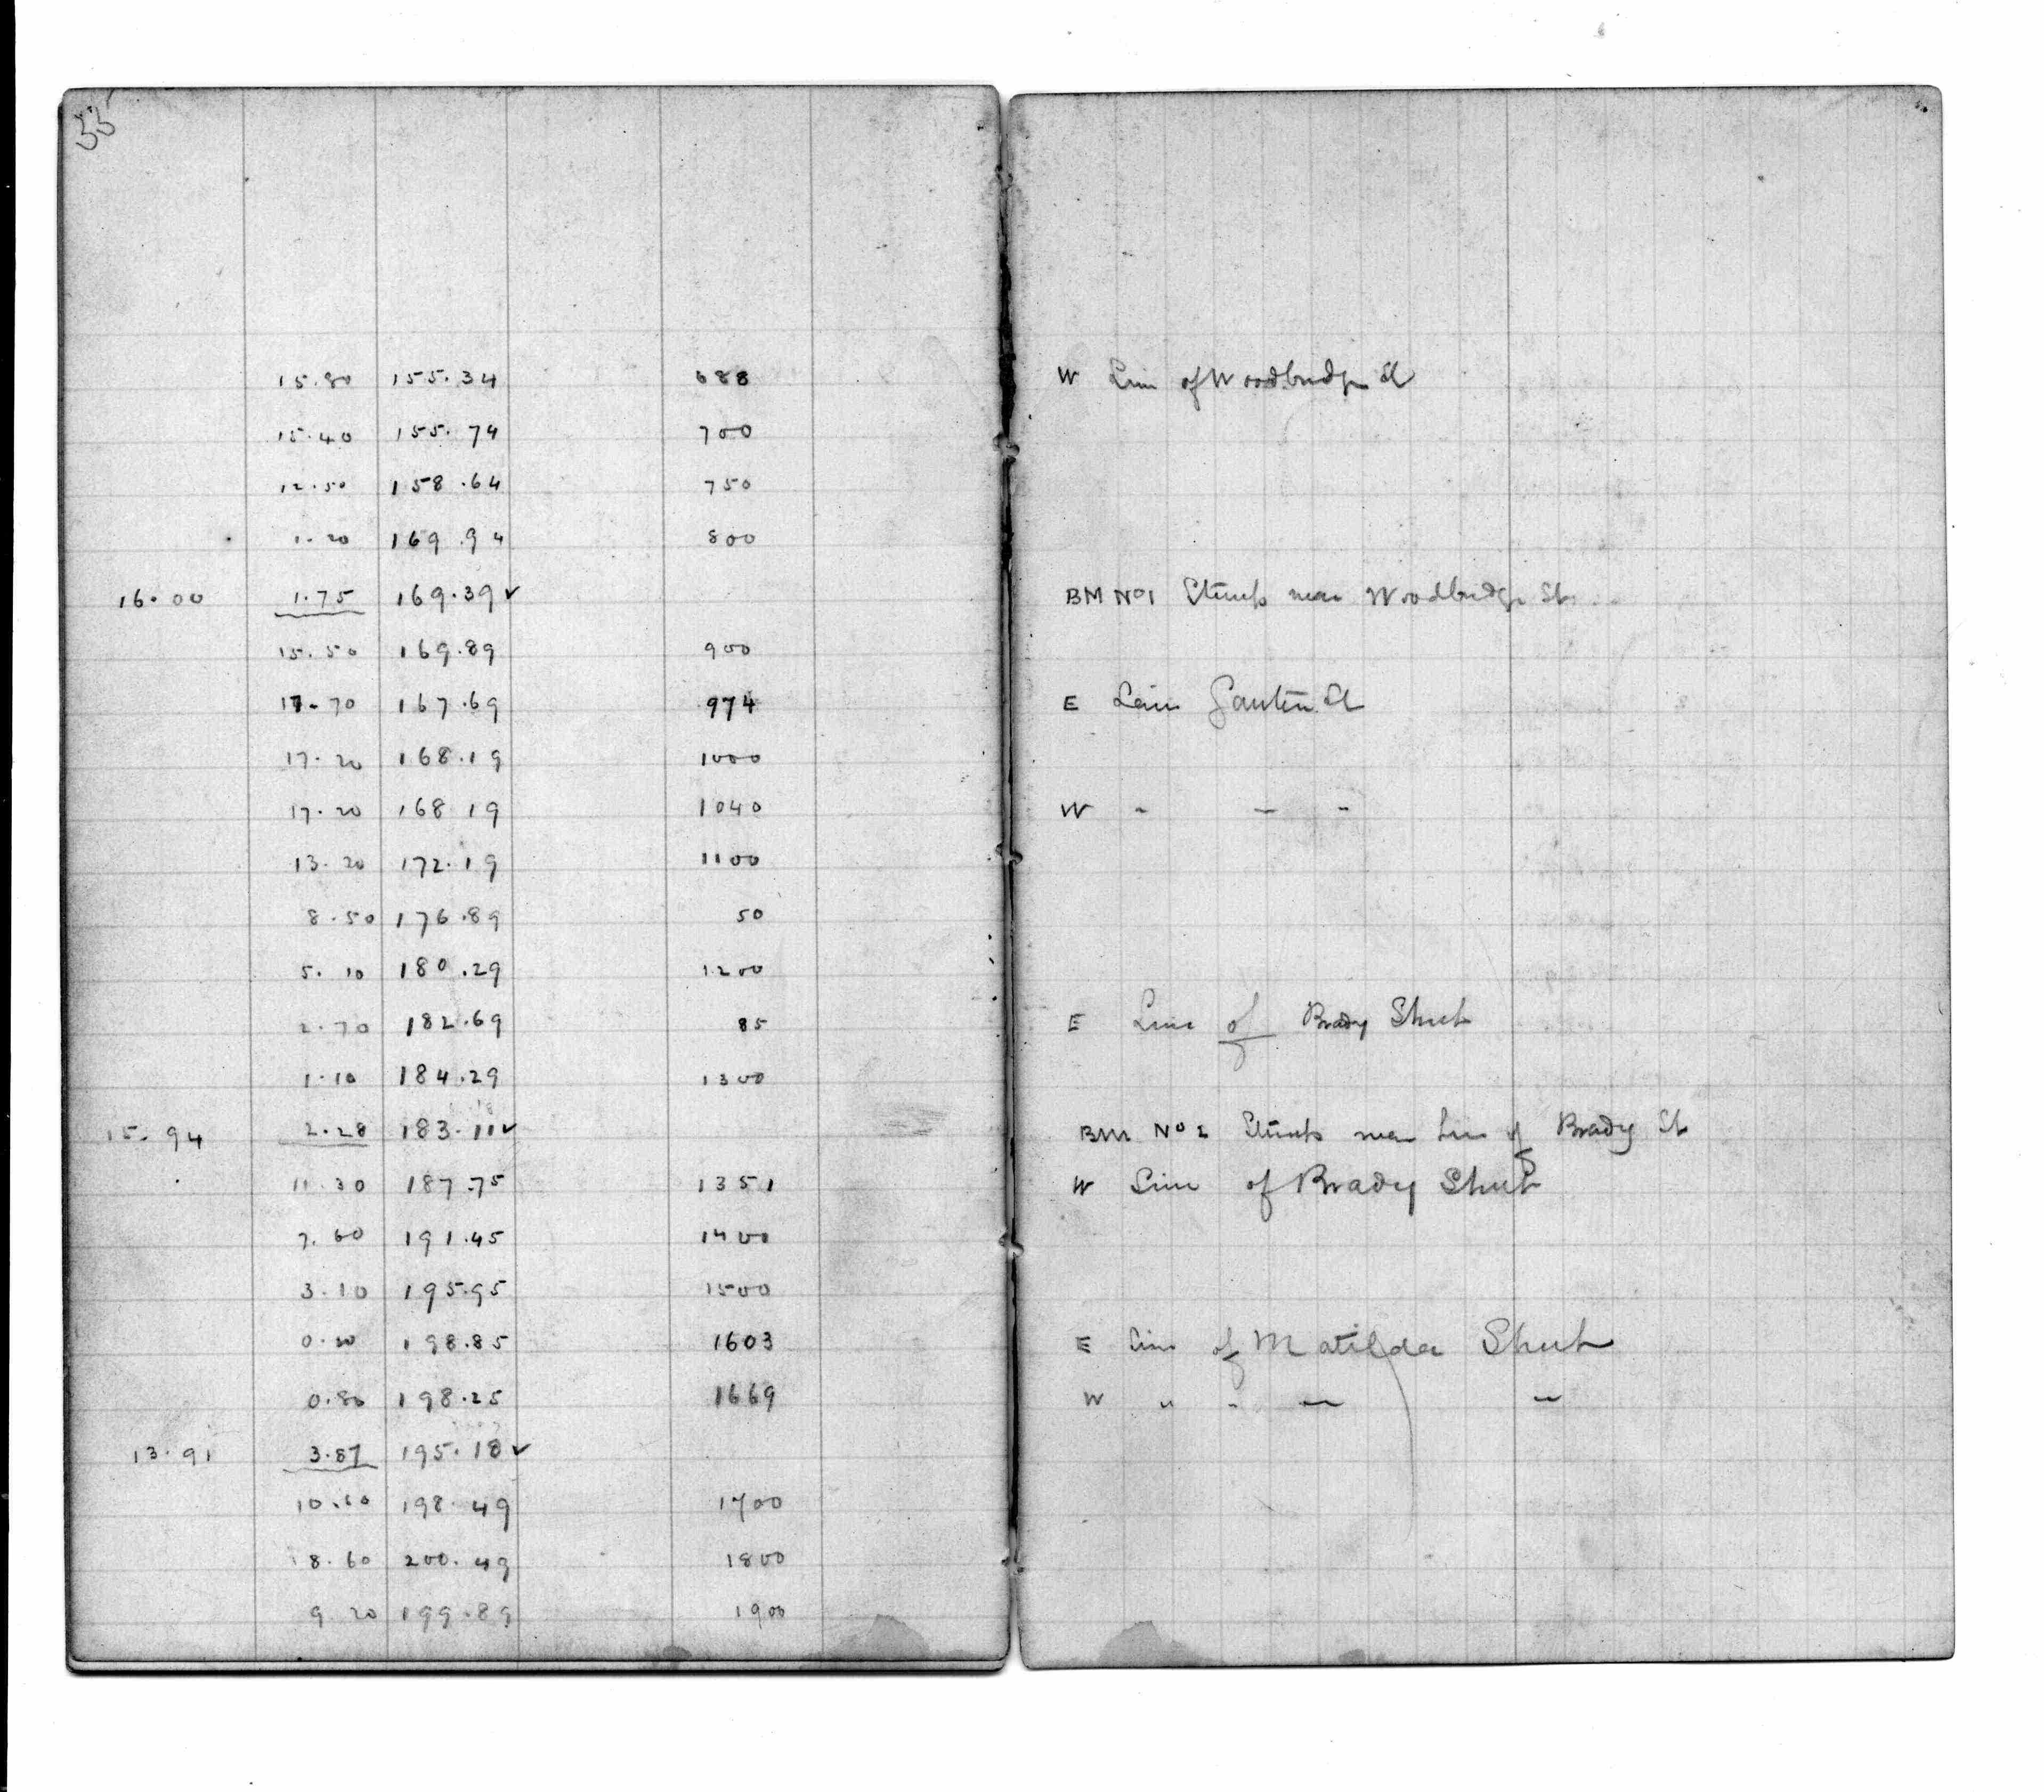 33
15.80 155.34 688 W Line of Woodbridge St
15.40 155.74 700
12.50 158.64 750
1.20 169.94 800
16.00 1.75 169.39 ✓ BM No 1 Stump near Woodbridge St
15.50 169.89 900
17.70 167.69 974 E Line St
17.20 168.19 1000
17.20 168 19 1040 W " " "
13.20 172.19 1100
8.50 176.89 50
5.10 180.29 1200
2.70 182.69 85 E Line of Brady Street
1.10 184.29 1300
15.94 2.28 183.11 ✓ BM No 2 Stump near Line of Brady St
11.30 187.75 1351 W Line of Brady Street
7.60 191.45 1400
3.10 195.95 1500
0.20 198.85 1603 E Line of Matilda Street
0.80 198.25 1669 W " " " "
13.91 3.87 195.18 ✓
10.60 198.49 1700
8.60 200.49 1800
9 20 199.89 1900